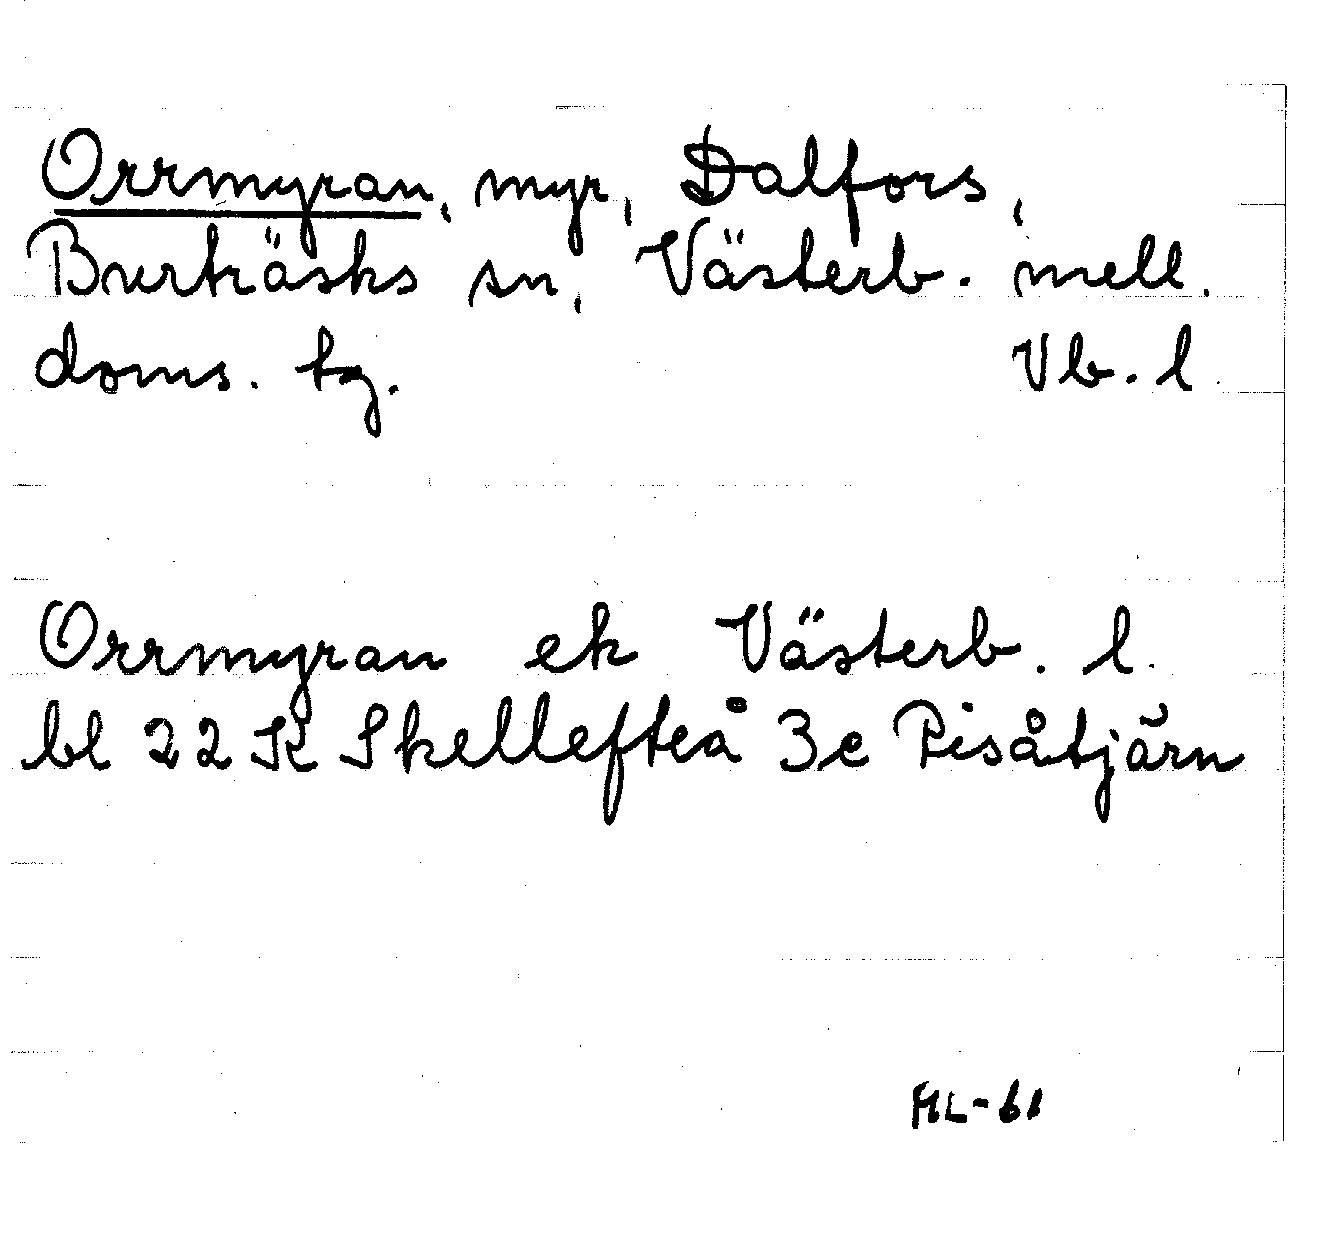 Orrmyran, myr, Dalfors,
Burträsks sn, Västerb. mell.
doms. tg. Vb. l.
Orrmyran ek Västerb. l.
bl 22 K Skellefteå 3c Pisåtjärn
ML-61